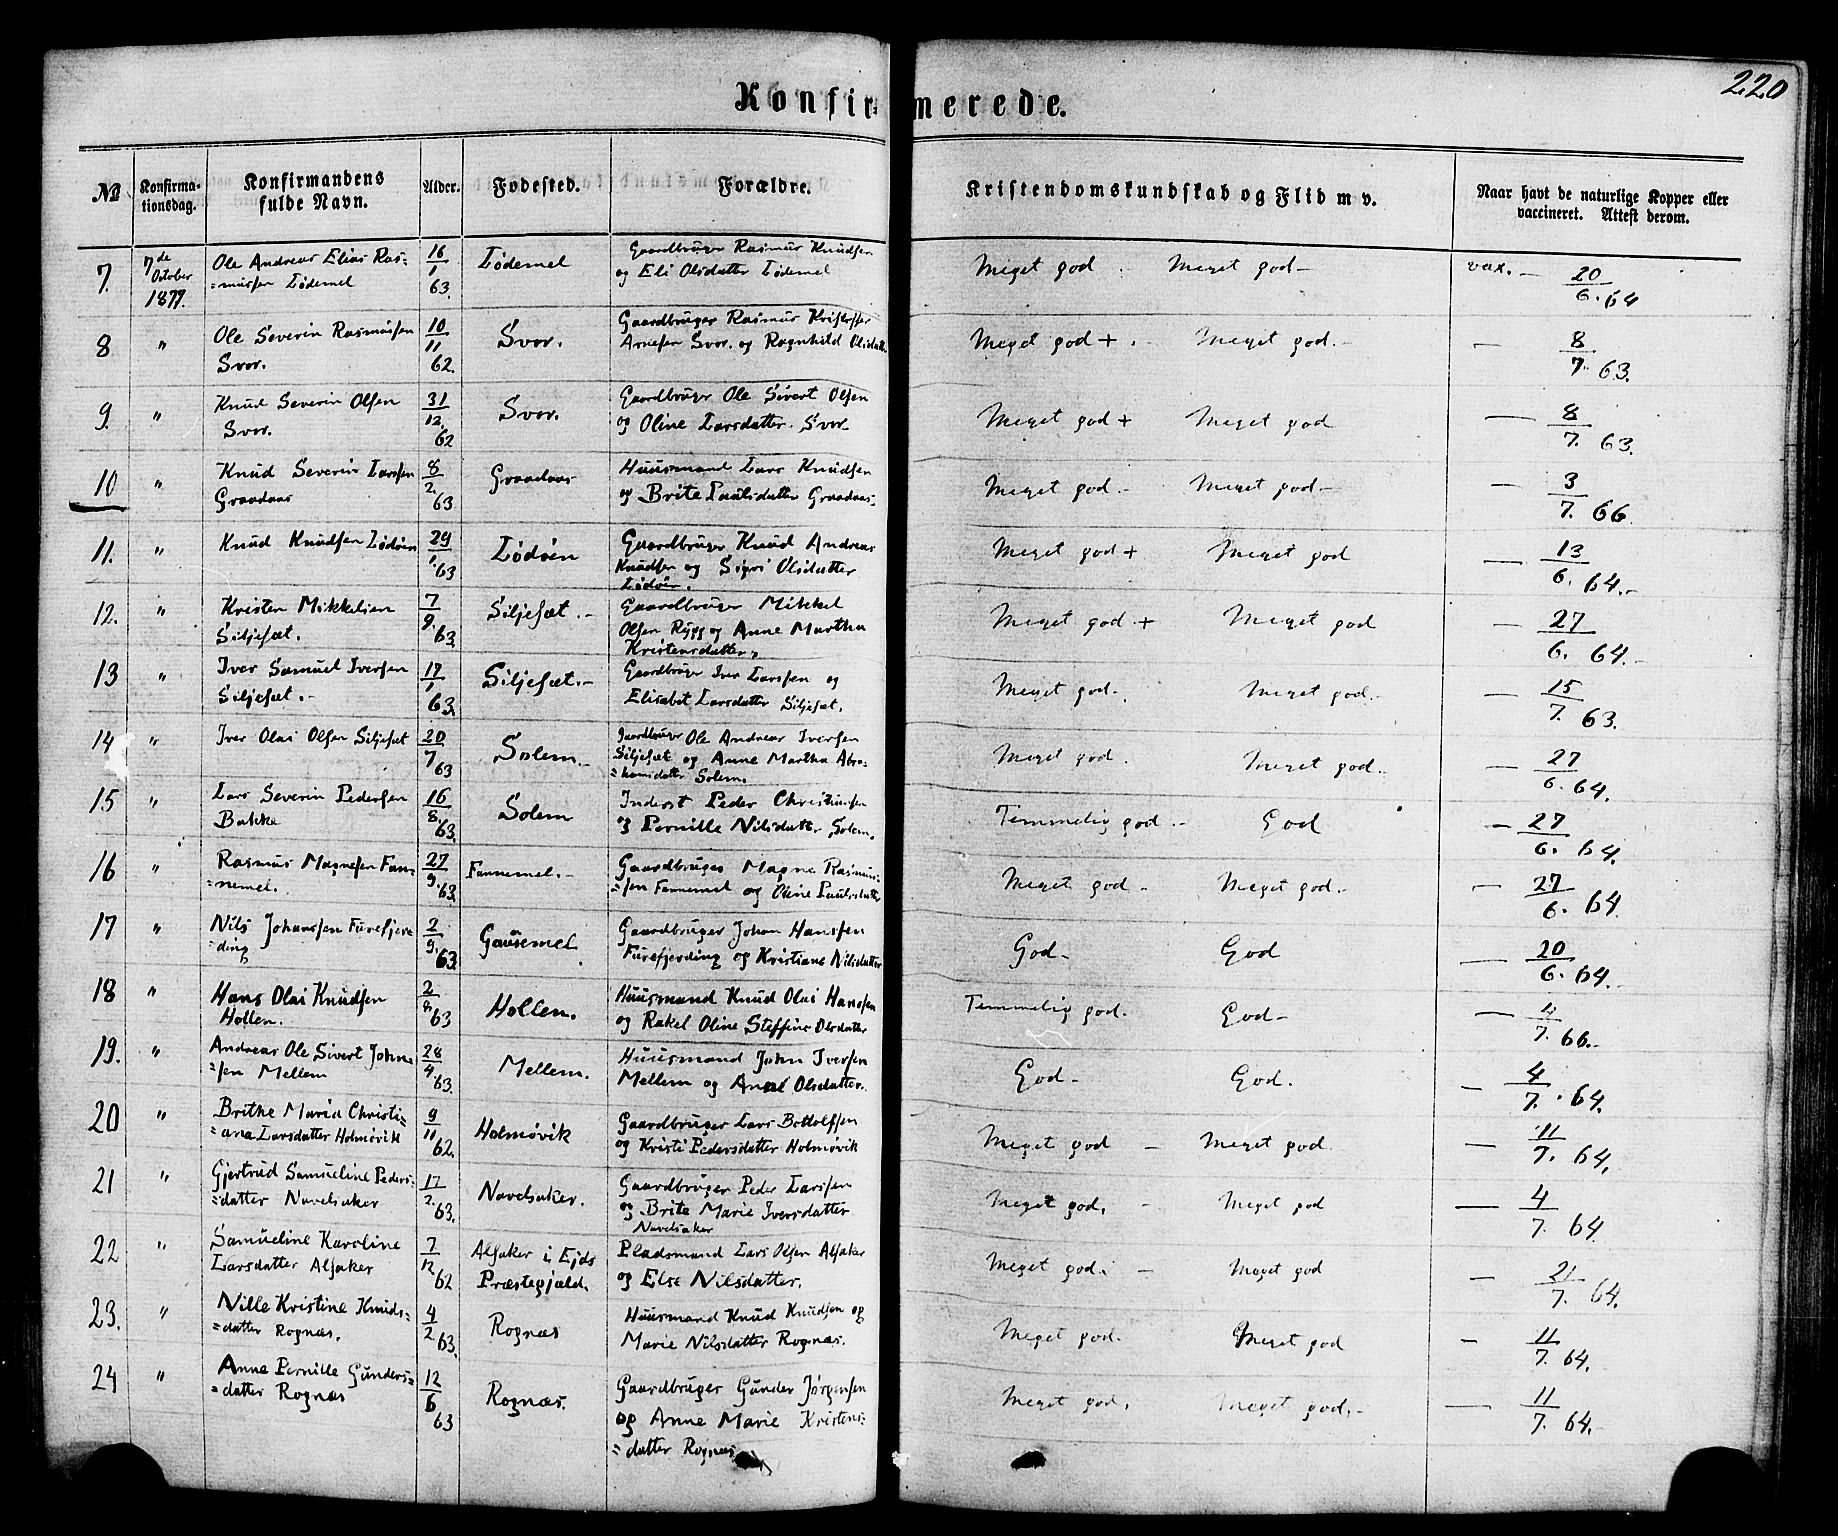 220
Konfirmerede.
№ Konfirmationsdag. Konfirmandens fulde Navn. Alder. Fødested. Forældre. Kristendomskundskab og Flid m v. Naar havt de naturlige Kopper eller vaccineret. Attest derom.
7. 7de October 1877. Ole Andreas Elias Ras= =mussen Lødemel 16/1 63. Lødemel Gaardbruger Rasmus Knudsen og Eli Olsdatter Lødemel Meget god. Meget god- vax. - 20/6. 64
8 " Ole Severin Rasmussen Svor. 10/11 62. Svor. Gaardbruger Rasmus Kristoffer Arnesen Svor. og Ragnhild Olsdatt. Meget god +. - Meget god. - — 8/7. 63.
9. " Knud Severin Olsen Svor. 31/12. 62 Svor. Gaardbruger Ole Sivert Olsen og Oline Larsdatter. Svor- Meget god + Meget god — 8/7. 63.
10 " Knud Severin Larssen Graadaas 8/2. 63 Graadaas Huusmand Lars Knudsen og Brite Paulsdatter Graadaas- Meget god. - Meget god- — 3/7. 66.
11. " Knud Knudsen Lødøen 29/1. 63 Lødøen Gaardbruger Knud Andreas Knudsen og Sigri Olsdatter Lødøen. Meget god + Meget god — 13/6. 64.-
12. " Kristen Mikkelsen Siljesæt. 7/9. 63. Siljesæt. - Gaardbruger Mikkel Olsen Rygg og Anne Martha Kristensdatter, Meget god. + Meget god — 27/6. 64.-
13 " Iver Samuel Iversen Siljesæt. - 17/1 63. Siljesæt. - Gaardbruger Iver Larssen og Elisabet Larsdatter Siljesæt. Meget god. Meget god. — 15/7. 63.
14 " Iver Olai Olsen Siljesæt 20/7 63 Solem. - Gaardbruger Ole Andreas Iversen Siljesæt og Anne Martha Abra= =hamsdatter Solem. Meget god. Meget god. — 27/6. 64.
15 " Lars Severin Pedersen Bakke 16/8. 63. Solem Inderst Peder Christiansen og Pernille Nilsdatter Solem. Temmelig god. - God — 27/6. 64.
16 " Rasmus Magnesen Fan= =nemel. 27/9. 63. Fannemel. - Gaardbruger Magne Rasmus= =sen Fannemel og Oline Paulsdatter Meget god- Meget god. - — 27/6. 64.
17 " Nils Johanssen Furefjer= =ding 2/9. 63. Gausemel Gaardbruger Johan Hanssen Furefjerding og Kristiane Nilsdatter God- God — 20/6. 64.
18 " Hans Olai Knudsen Hollen. 2/8. 63 Hollen. Huusmand Knud Olai Hanssen og Rakel Oline Steffine Olsdatter Temmelig god. God- — 4/7. 66.-
19. " Andreas Ole Sivert Johns= =sen Mellem 28/4. 63. Mellem. Huusmand John Iversen Mellem og Anne Olsdatter. God- God. — 4/7. 64.
20 " Brithe Maria Christi= =ana Larsdatter Holmøvik 9/11 62. Holmøvik Gaardbruger Lars Bottolfsen og Kristi Pedersdatter Holmøvik Meget god - Meget god. — 11/7. 64.
21 " Gjertrud Samueline Peders= =datter Navelsaker 17/2. 63. Navelsaker. Gaardbruger Peder Larssen og Brite Marie Iversdatter Navelsaker Meget god. - Meget god — 4/7. 64.
22 " Samueline Karoline Larsdatter Alsaker 7/12 62 Alsaker i Ejds Præstegjæld. Pladsmand Lars Olsen Alsaker og Else Nilsdatter. Meget god. - Meget god — 21/7. 64.
23. " Nille Kristine Knuds= =datter Rognæs. 4/2 63. Rognæs Huusmand Knud Knudsen og Marie Nilsdatter Rognæs. Meget god. Meget god — 11/7. 64.
24 " Anne Pernille Gunders= =datter Rognæs 12/6 63 Rognæs. Gaardbruger Gunder Jørgensen og Anne Marie Kristens= =datter Rognæs. Meget god. Meget god. - — 11/7. 64.-